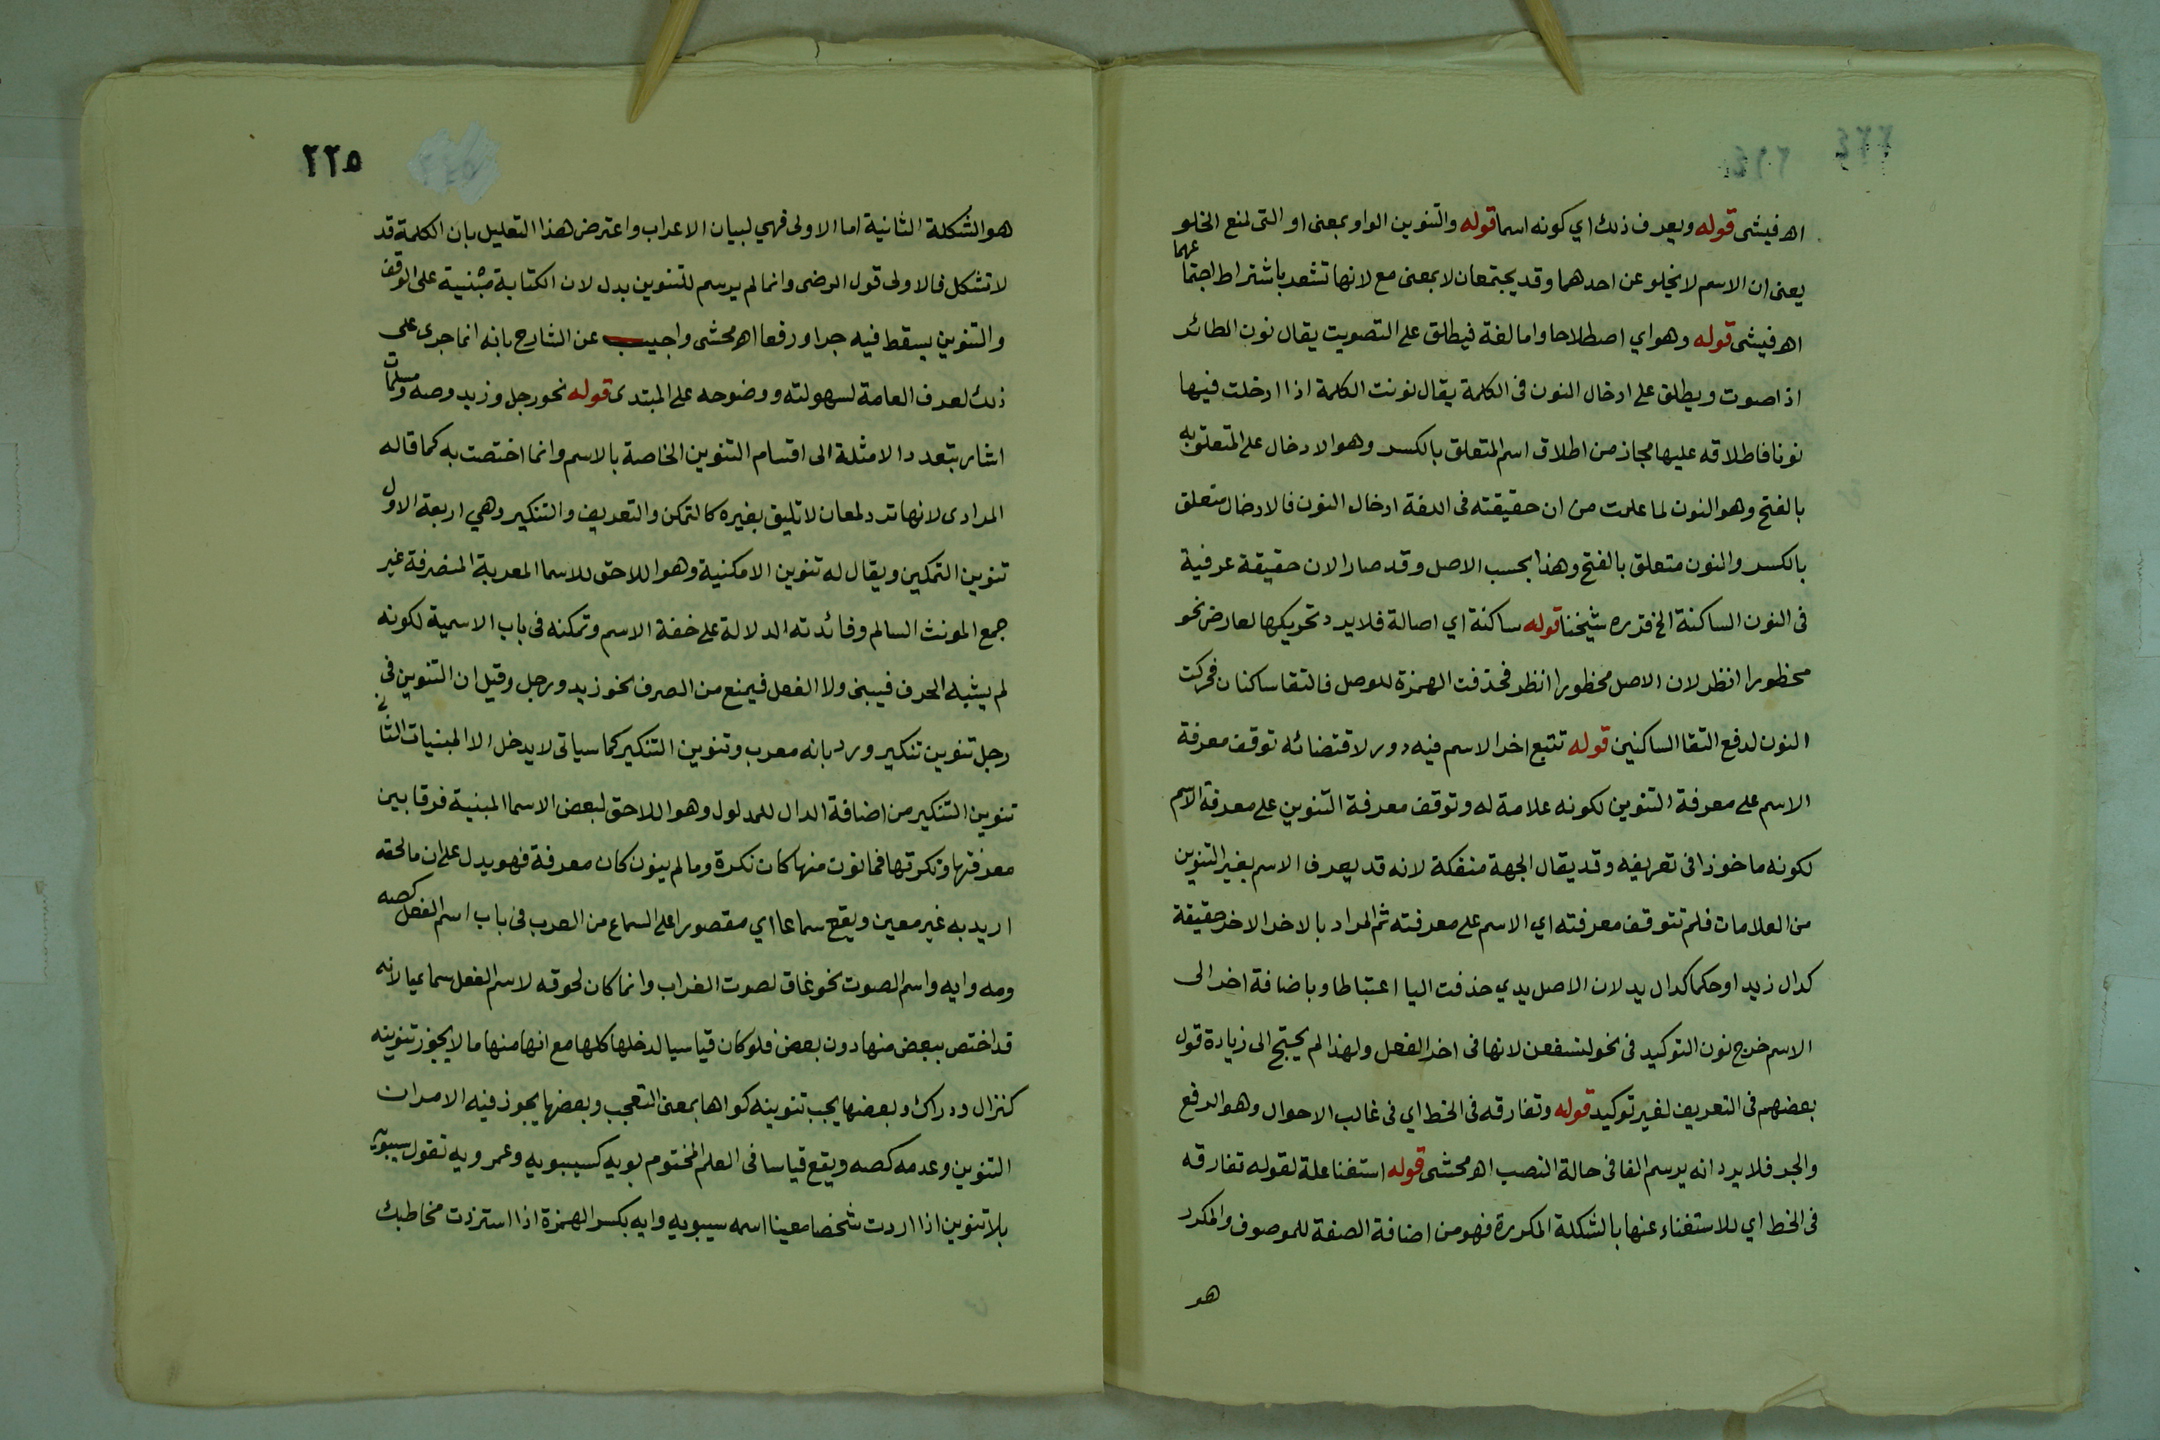 ٢٢٤
اهـ فيشى قوله ويعرف ذلك اي كونه اسما قوله والتنوين الواو بمعنى او التى لمنع الخلو
يعنى ان الاسم لا يخلو عن احدهما وقد يجتمعان لا بمعنى مع لانها تشعر باشتراط اجتماعهما
اهـ فيشى قوله وهو اي اصطلاحا واما لغة فيطلق على التصويت يقال نون الطائر
اذا صوت ويطلق على ادخال النون فى الكلمة يقال نونت الكلمة اذا ادخلت فيها
نونا فاطلاقه عليها مجاز من اطلاق اسم المتعلق بالكسر وهو الادخال على المتعلق به
بالفتح وهو النون لما علمت من ان حقيقته فى اللغة ادخال النون فالادخال متعلق
بالكسر والنون متعلق بالفتح وهذا بحسب الاصل وقد صار الان حقيقة عرفية
فى النون الساكنة الخ قرره شيخنا قوله ساكنة اي اصالة فلا يرد تحريكها لعارض نحو
محظورا انظر لان الاصل محظورا انظر فحذفت الهمزة للوصل فالتقا ساكنان فحركت
النون لدفع التقا الساكنين قوله تتبع اخر الاسم فيه دور لاقتضائه توقف معرفة
الاسم على معرفة التنوين لكونه علامة له وتوقف معرفة التنوين على معرفة الاسم
لكونه ماخوذا فى تعريفه وقد يقال الجهة منفكة لانه قد يعرف الاسم بغير التنوين
من العلامات فلم تتوقف معرفته اي الاسم على معرفته ثم المراد بالاخر الاخر حقيقة
كدال زيد او حكما كدال يد لان الاصل يدي حذفت اليا اعتباطا وباضافة اخر الى
الاسم خرج نون التوكيد فى نحو لنسفعن لانها فى اخر الفعل ولهذا لم يحتج الى زيادة قول
بعضهم فى التعريف لغير توكيد قوله وتفارقه فى الخط اي فى غالب الاحوال وهو الرفع
والجر فلا يرد انه يرسم الفا فى حالة النصب اهـ محشى قوله استغنا علة لقوله تفارقه
فى الخط اي للاستغناء عنها بالشكلة المكررة فهو من اضافة الصفة للموصوف والمكرر
هو
٢٢٥
هو الشكلة الثانية اما الاولى فهي لبيان الاعراب واعترض هذا التعليل بان الكلمة قد
لا تشكل فالاولى قول الرضى وانما لم يرسم للتنوين بدل لان الكتابة مبنية على الوقف
والتنوين يسقط فيه جرا ورفعا اهـ محشى واجيب عن الشارح بانه انما جرى على
ذلك لعرف العامة لسهولته ووضوحه على المبتدى قوله نحو رجل وزيد وصه ومسلمات
اشار بتعدد الامثلة الى اقسام التنوين الخاصة بالاسم وانما اختصت به كما قاله
المرادى لانها ترد لمعان لا تليق بغيره كالتمكن والتعريف والتنكير وهي اربعة الاول
تنوين التمكين ويقال له تنوين الامكنية وهو اللاحق للاسما المعربة المنصرفة غير
جمع المونث السالم وفائدته الدلالة على خفة الاسم وتمكنه فى باب الاسمية لكونه
لم يشبه الحرف فيبنى ولا الفعل فيمنع من الصرف نحو زيد ورجل وقيل ان التنوين فى
رجل تنوين تنكير ورد بانه معرب وتنوين التنكير كما سياتى لا يدخل الا المبنيات الثانى
تنوين التنكير من اضافة الدال للمدلول وهو اللاحق لبعض الاسما المبنية فرقا بين
معرفتها ونكرتها فما نون منها كان نكرة وما لم ينون كان معرفة فهو يدل على ان ما لحقه
اريد به غير معين ويقع سماعا اي مقصورا على السماع من العرب فى باب اسم الفعل كصه
ومه وايه واسم الصوت نحو غاق لصوت الغراب وانما كان لحوقه لاسم الفعل سماعيا لانه
قد اختص ببعض منها دون بعض فلو كان قياسيا لدخلها كلها مع انها منها ما لا يجوز تنوينه
كنزال ودراك وبعضها يجب تنوينه كواها بمعنى التعجب وبعضها يجوز فيه الامران
التنوين وعدمه كصه ويقع قياسا فى العلم المختوم بويه كسيبويه وعمرويه تقول سيبويه
بلا تنوين اذا اردت شخصا معينا اسمه سيبويه وايه بكسر الهمزة اذا استزدت مخاطبك